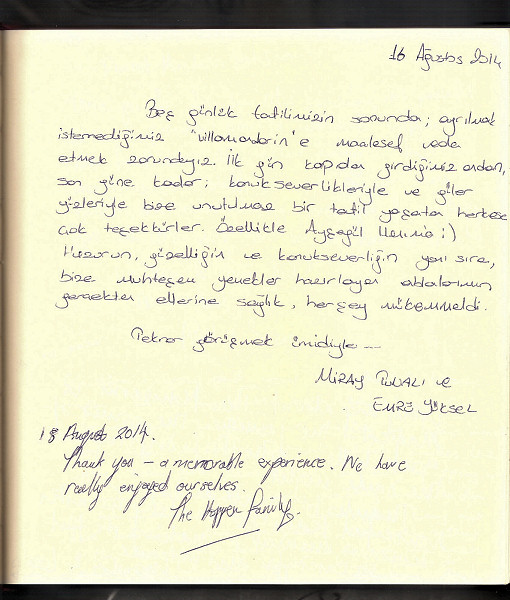 16 Ağustos 2014
Beş günlük tatilimizin sonunda; ayrılmak
istemediğimiz "villamandarin'e maalesef veda
etmek zorundayız. İlk gün kapıdan girdiğimiz andan,
son güne kadar; konukseverlikleriyle ve güler
yüzleriyle bize unutulmaz bir tatil yaşatan herkese
çok teşekkürler. Özellikle Ayşegül :)
Huzurun, güzelliğin ve konukseverliğin yanı sıra,
bize muhteşem yemekler hazırlayan ablalarımın
gerçekten ellerine sağlık, herşey mükemmeldi.
Tekrar görüşmek ümidiyle ---
MİRAY ve
EMRE YÜKSEL
18 August 2014.
Thank you – a memorable experience. We have
really enjoyed ourselves.
The Family.